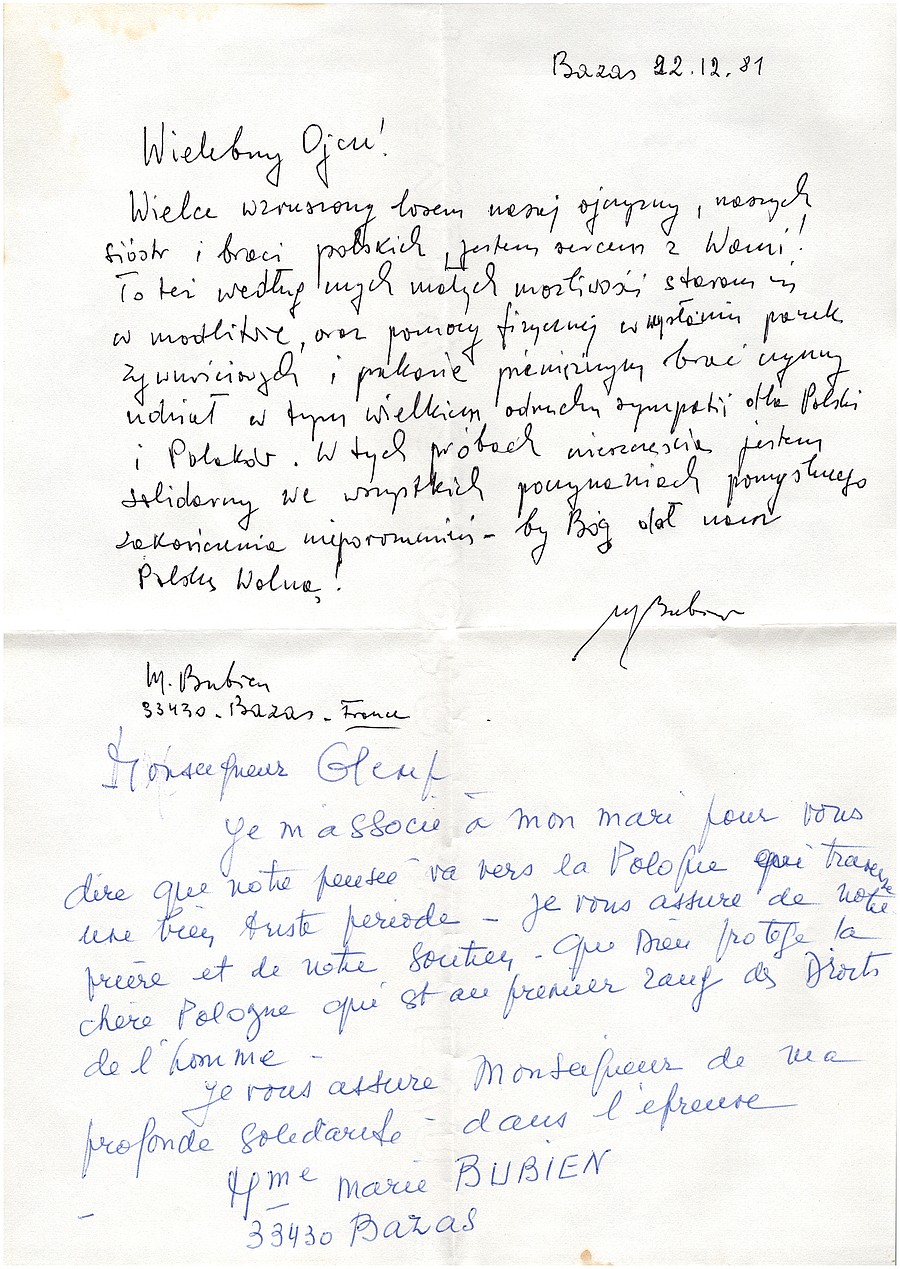 Bazas 22.12.81
Wielebny Ojcze!
Wielce wzruszony losem naszej ojczyzny, naszych
sióstr i braci polskich, jestem sercem z Wami!
To też według mych małych możliwości staram się
w modlitwie, oraz pomocy fizycznej w wysłaniu paczek
żywnościowych i pieniężnym brać czynny
udział w tym wielkim odruchu sympatii dla Polski
i Polaków. W tych próbach nieszczęścia jestem
solidarny we wszystkich poczynaniach pomyślnego
zakończenia nieporozumień - by Bóg dał nam
Polskę Wolną!
M. Bubien
33430 - Bazas - France
Monseigneur
Je m'associe à mon mari pour vous
dire que notre pensée va vers la Pologne qui traverse
une bien triste période - Je vous assure de notre
prière et de notre soutien - que Dieu protège la
chère Pologne qui est au premier rang des Droits
de l'homme -
Je vous assure Monseigneur de ma
profonde solidarité - dans l'épreuve
Mme Marie BUBIEN
33430 Bazas